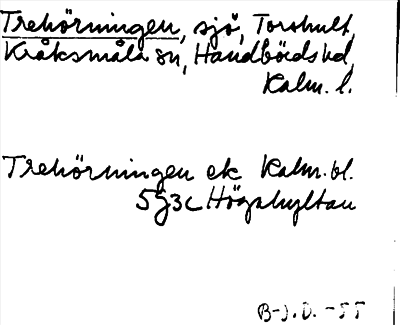 Trehörningen, sjö, Torshult,
Kråksmåla sn, Handbörds hd,
Kalm. l.
Trehörningen ek Kalm. bl.
5g3c Högahyltan
B-J. D. -55